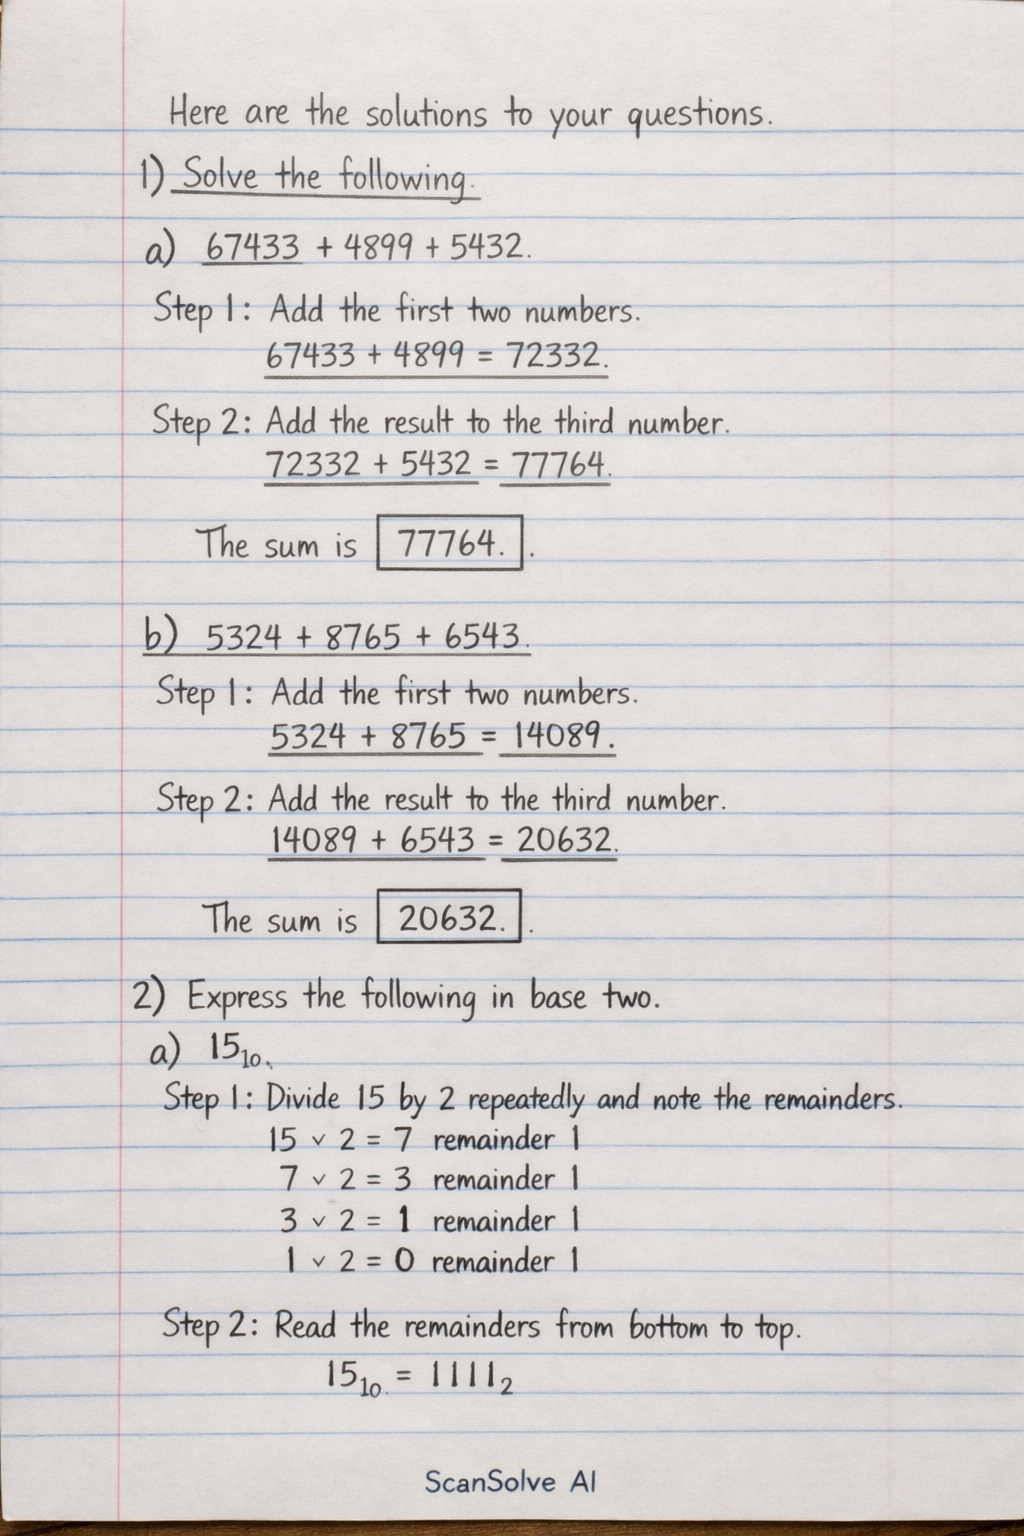 Here are the solutions to your questions.
1) Solve the following.
a) 67433 + 4899 + 5432.
Step 1: Add the first two numbers.
67433 + 4899 = 72332.
Step 2: Add the result to the third number.
72332 + 5432 = 77764.
The sum is 77764. .
b) 5324 + 8765 + 6543.
Step 1: Add the first two numbers.
5324 + 8765 = 14089.
Step 2: Add the result to the third number.
14089 + 6543 = 20632.
The sum is 20632. .
2) Express the following in base two.
a) 15₁₀.
Step 1: Divide 15 by 2 repeatedly and note the remainders.
15 ∨ 2 = 7 remainder 1
7 ∨ 2 = 3 remainder 1
3 ∨ 2 = 1 remainder 1
1 ∨ 2 = 0 remainder 1
Step 2: Read the remainders from bottom to top.
15₁₀. = 1111₂
ScanSolve AI